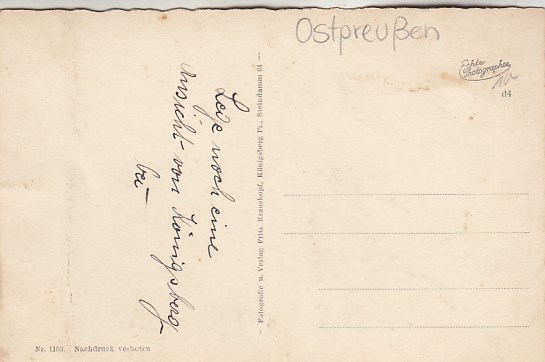 Ostpreußen
Echte
Photographie
10
d4
Lege noch eine
Ansicht von Königsberg
bei
— Fotografie u. Verlag Fritz Krauskopf, Königsberg Pr., Steindamm 64 —
Nr. 1103. Nachdruck verboten